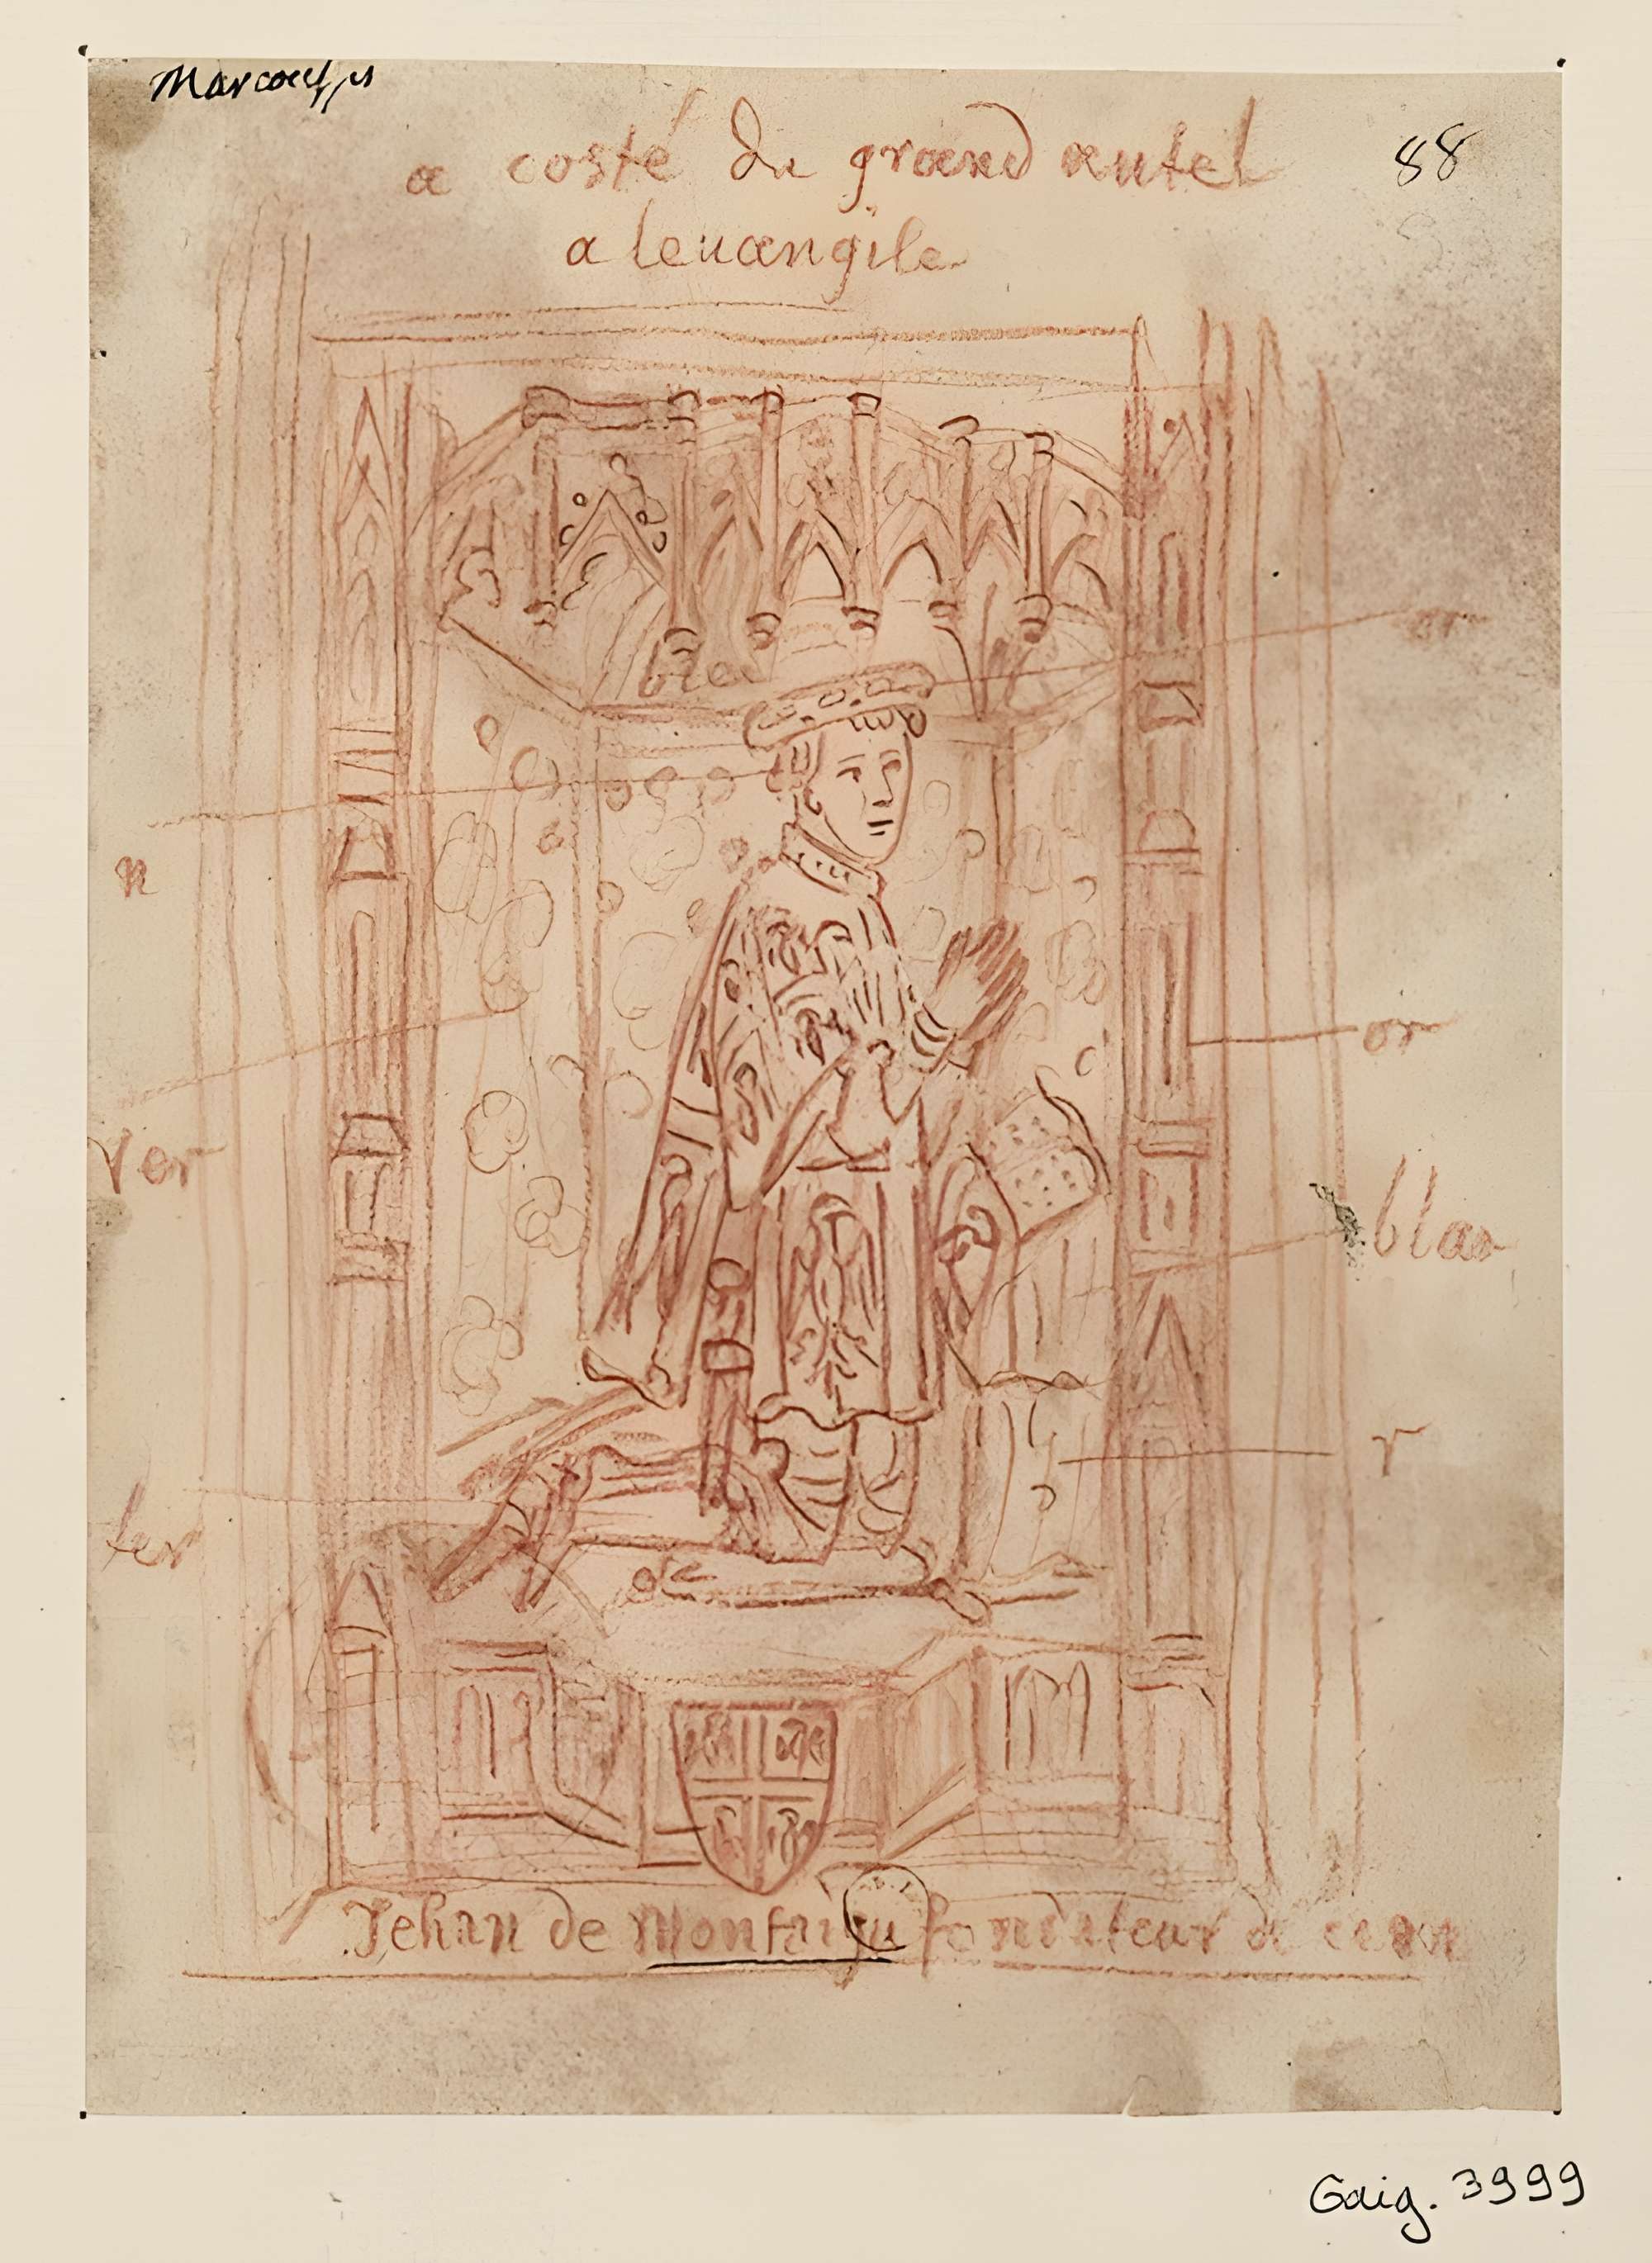 Marcoussis
88
a costé du grand autel
a levangile
bleu
or
n
or
ver
blan
r
ter
Jehan de Montaigu fondateur de ceans
Gaig. 3999